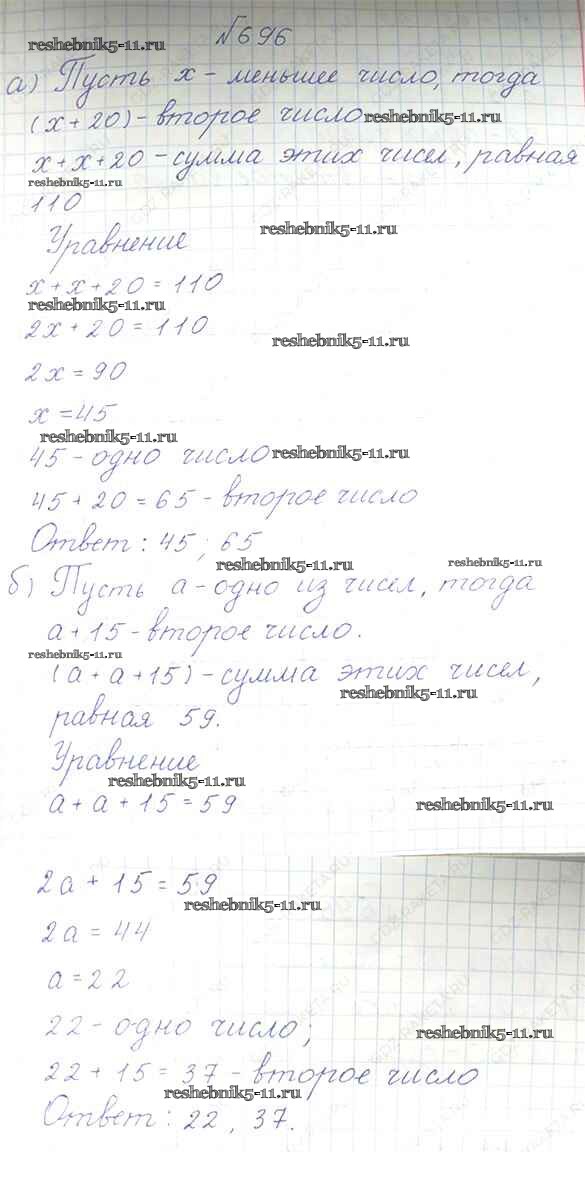 №696
reshebnik5-11.ru
а) Пусть x - меньшее число, тогда
(x + 20) - второе число reshebnik5-11.ru
x + x + 20 - сумма этих чисел, равная
reshebnik5-11.ru
110
Уравнение reshebnik5-11.ru
x + x + 20 = 110
reshebnik5-11.ru
2x + 20 = 110
reshebnik5-11.ru
2x = 90
x = 45
reshebnik5-11.ru
45 - одно число reshebnik5-11.ru
45 + 20 = 65 - второе число
Ответ: 45; 65
reshebnik5-11.ru reshebnik5-11.ru
б) Пусть a - одно из чисел, тогда
a + 15 - второе число.
reshebnik5-11.ru
(a + a + 15) - сумма этих чисел,
reshebnik5-11.ru
равная 59.
Уравнение
reshebnik5-11.ru
a + a + 15 = 59 reshebnik5-11.ru
2a + 15 = 59
reshebnik5-11.ru
2a = 44
a = 22
22 - одно число; reshebnik5-11.ru
22 + 15 = 37 - второе число
reshebnik5-11.ru
Ответ: 22, 37.